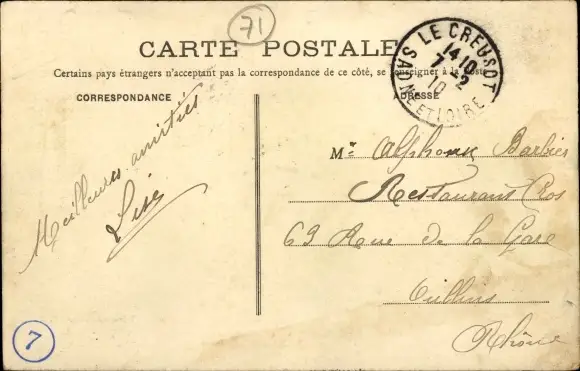 71
CARTE POSTALE
Certains pays étrangers n'acceptent pas la correspondance de ce côté, se renseigner à la Poste
CORRESPONDANCE
ADRESSE
LE CREUSOT
14 10
7 - 2
10
SAONE-ET-LOIRE
Meilleures amitiés
Lise
Mr Alphonse Barbier
Restaurant Cros
69 Rue de la Gare
Oullins
Rhône
7